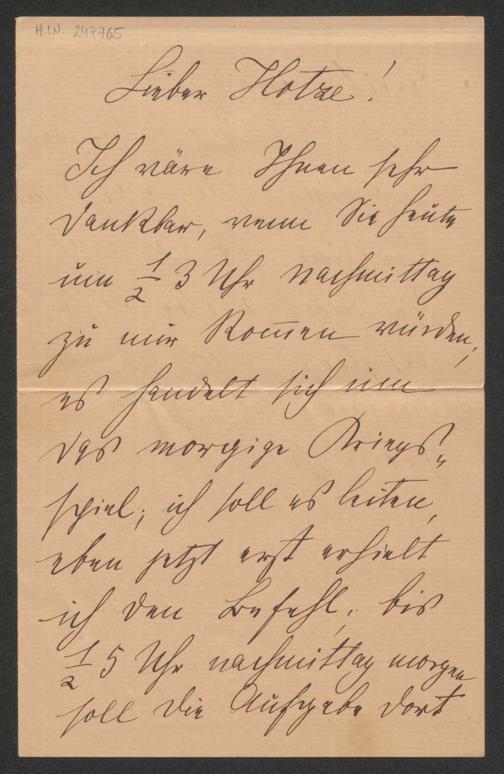 H.I.N. 247765
Lieber Hotze!
Ich wäre Ihnen sehr
dankbar, wenn Sie heute
um ½ 3 Uhr Nachmittag
zu mir kom̄en würden;
es handelt sich um
das morgige Kriegs„
spiel; ich soll es leiten,
eben jetzt erst erhielt
ich den Befehl, bis
½ 5 Uhr nachmittag morgen
soll die Aufgabe dort